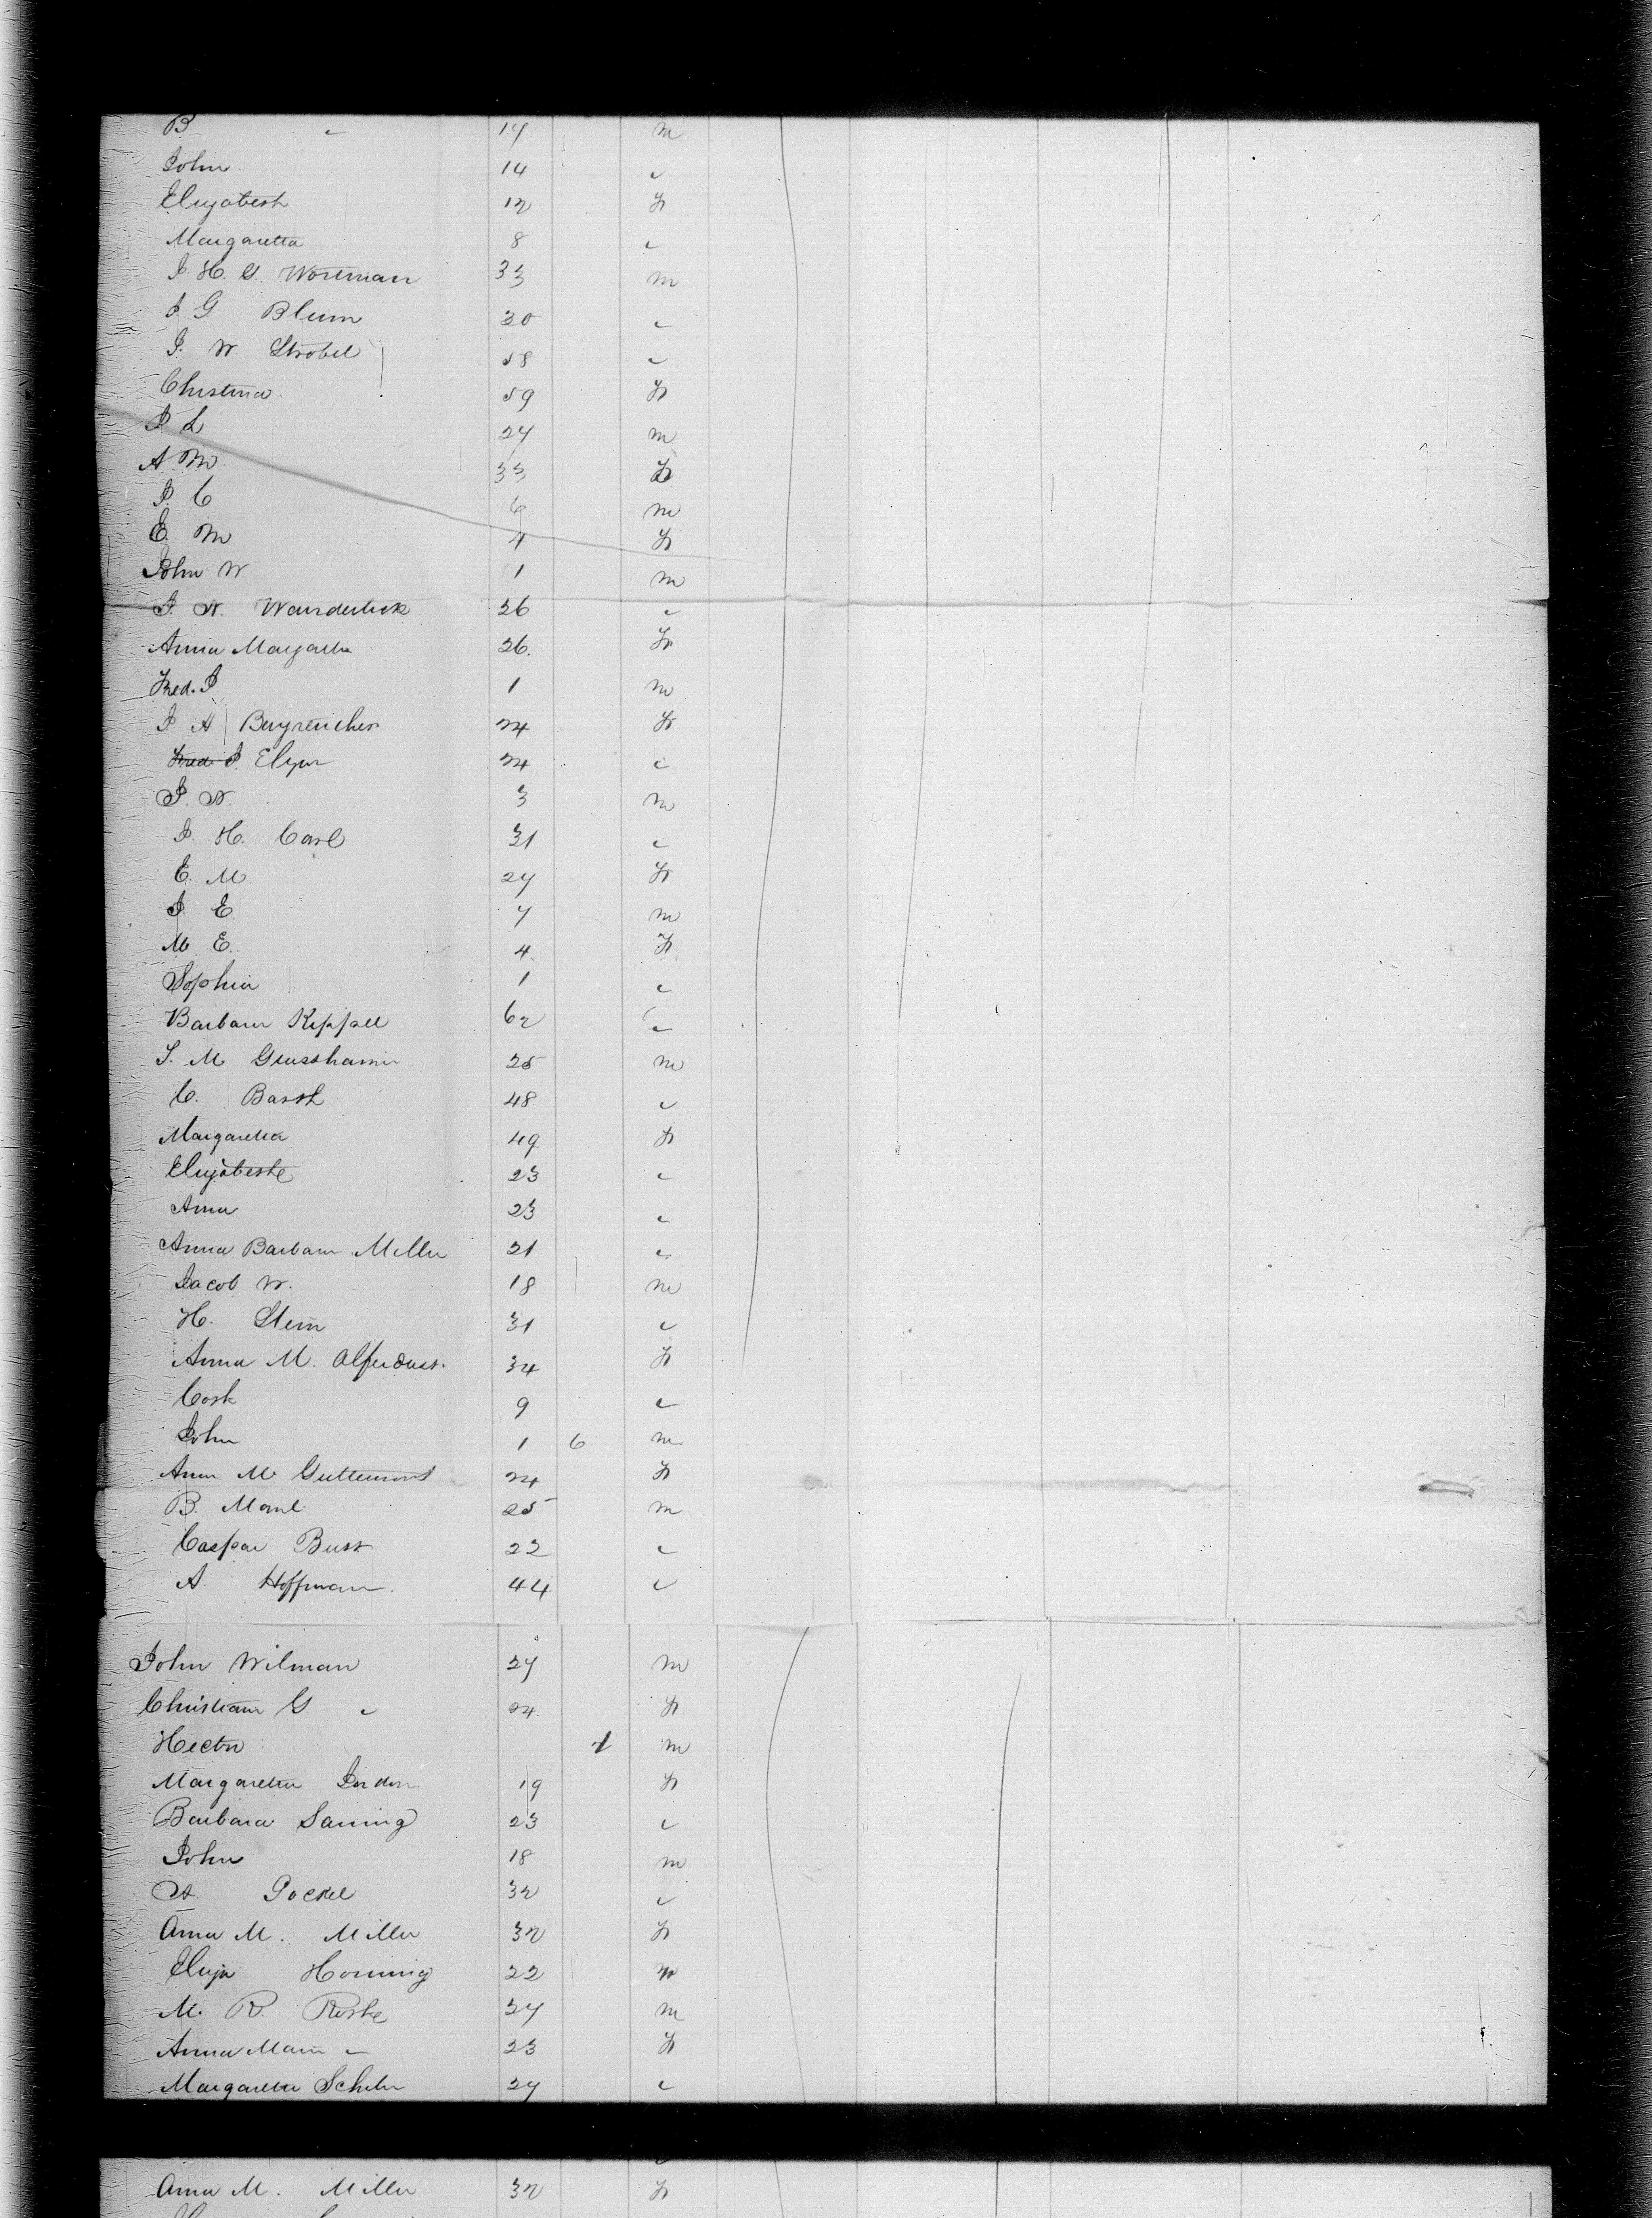 B " 17 m
John 14 "
Elizabeth 12 f
Margaretta 8 "
J H. G. Wortman 33 m
J G Blum 30 "
J. W Strobel 58 "
Christina. 59 f
J L 27 m
A M. 33 f
J. C 6 m
E. M 4 f
John W 1 m
J. N. Wanderlick 26 "
Anna Margaetta 26. f
Fred. J 1 m
J A Bayreicher 24 f
Fred J Eliza 24 "
J. N. 3 m
J. H. Carl 31 "
E. M 27 f
J E 7 m
M E. 4 f
Sophia 1 "
Barbara 62 "
J. M 25 m
C. Barth 48 "
Margaretta 49 f
Elizabethe 23 "
Anna 23 "
Anna Barbara Miller 21 "
Jacob W. 18 m
H. Stern 31 "
Anna M. 34 f
9 "
John 1 6 m
Anna M. 24 f
B. 25 m
Caspar Buss 22 "
A Hoffman. 44 "
John Wilman 27 m
Christiana G " 24 f
Hector 1 m
Margaretta 19 f
Barbara 23 "
John 18 m
A. 32 "
Anna M. Miller 32 f
Eliza Horning 22 "
M. R. 27 m
Anna Maria " 23 f
Margaretta Schuler 27 "
Anna M. Miller 32 f